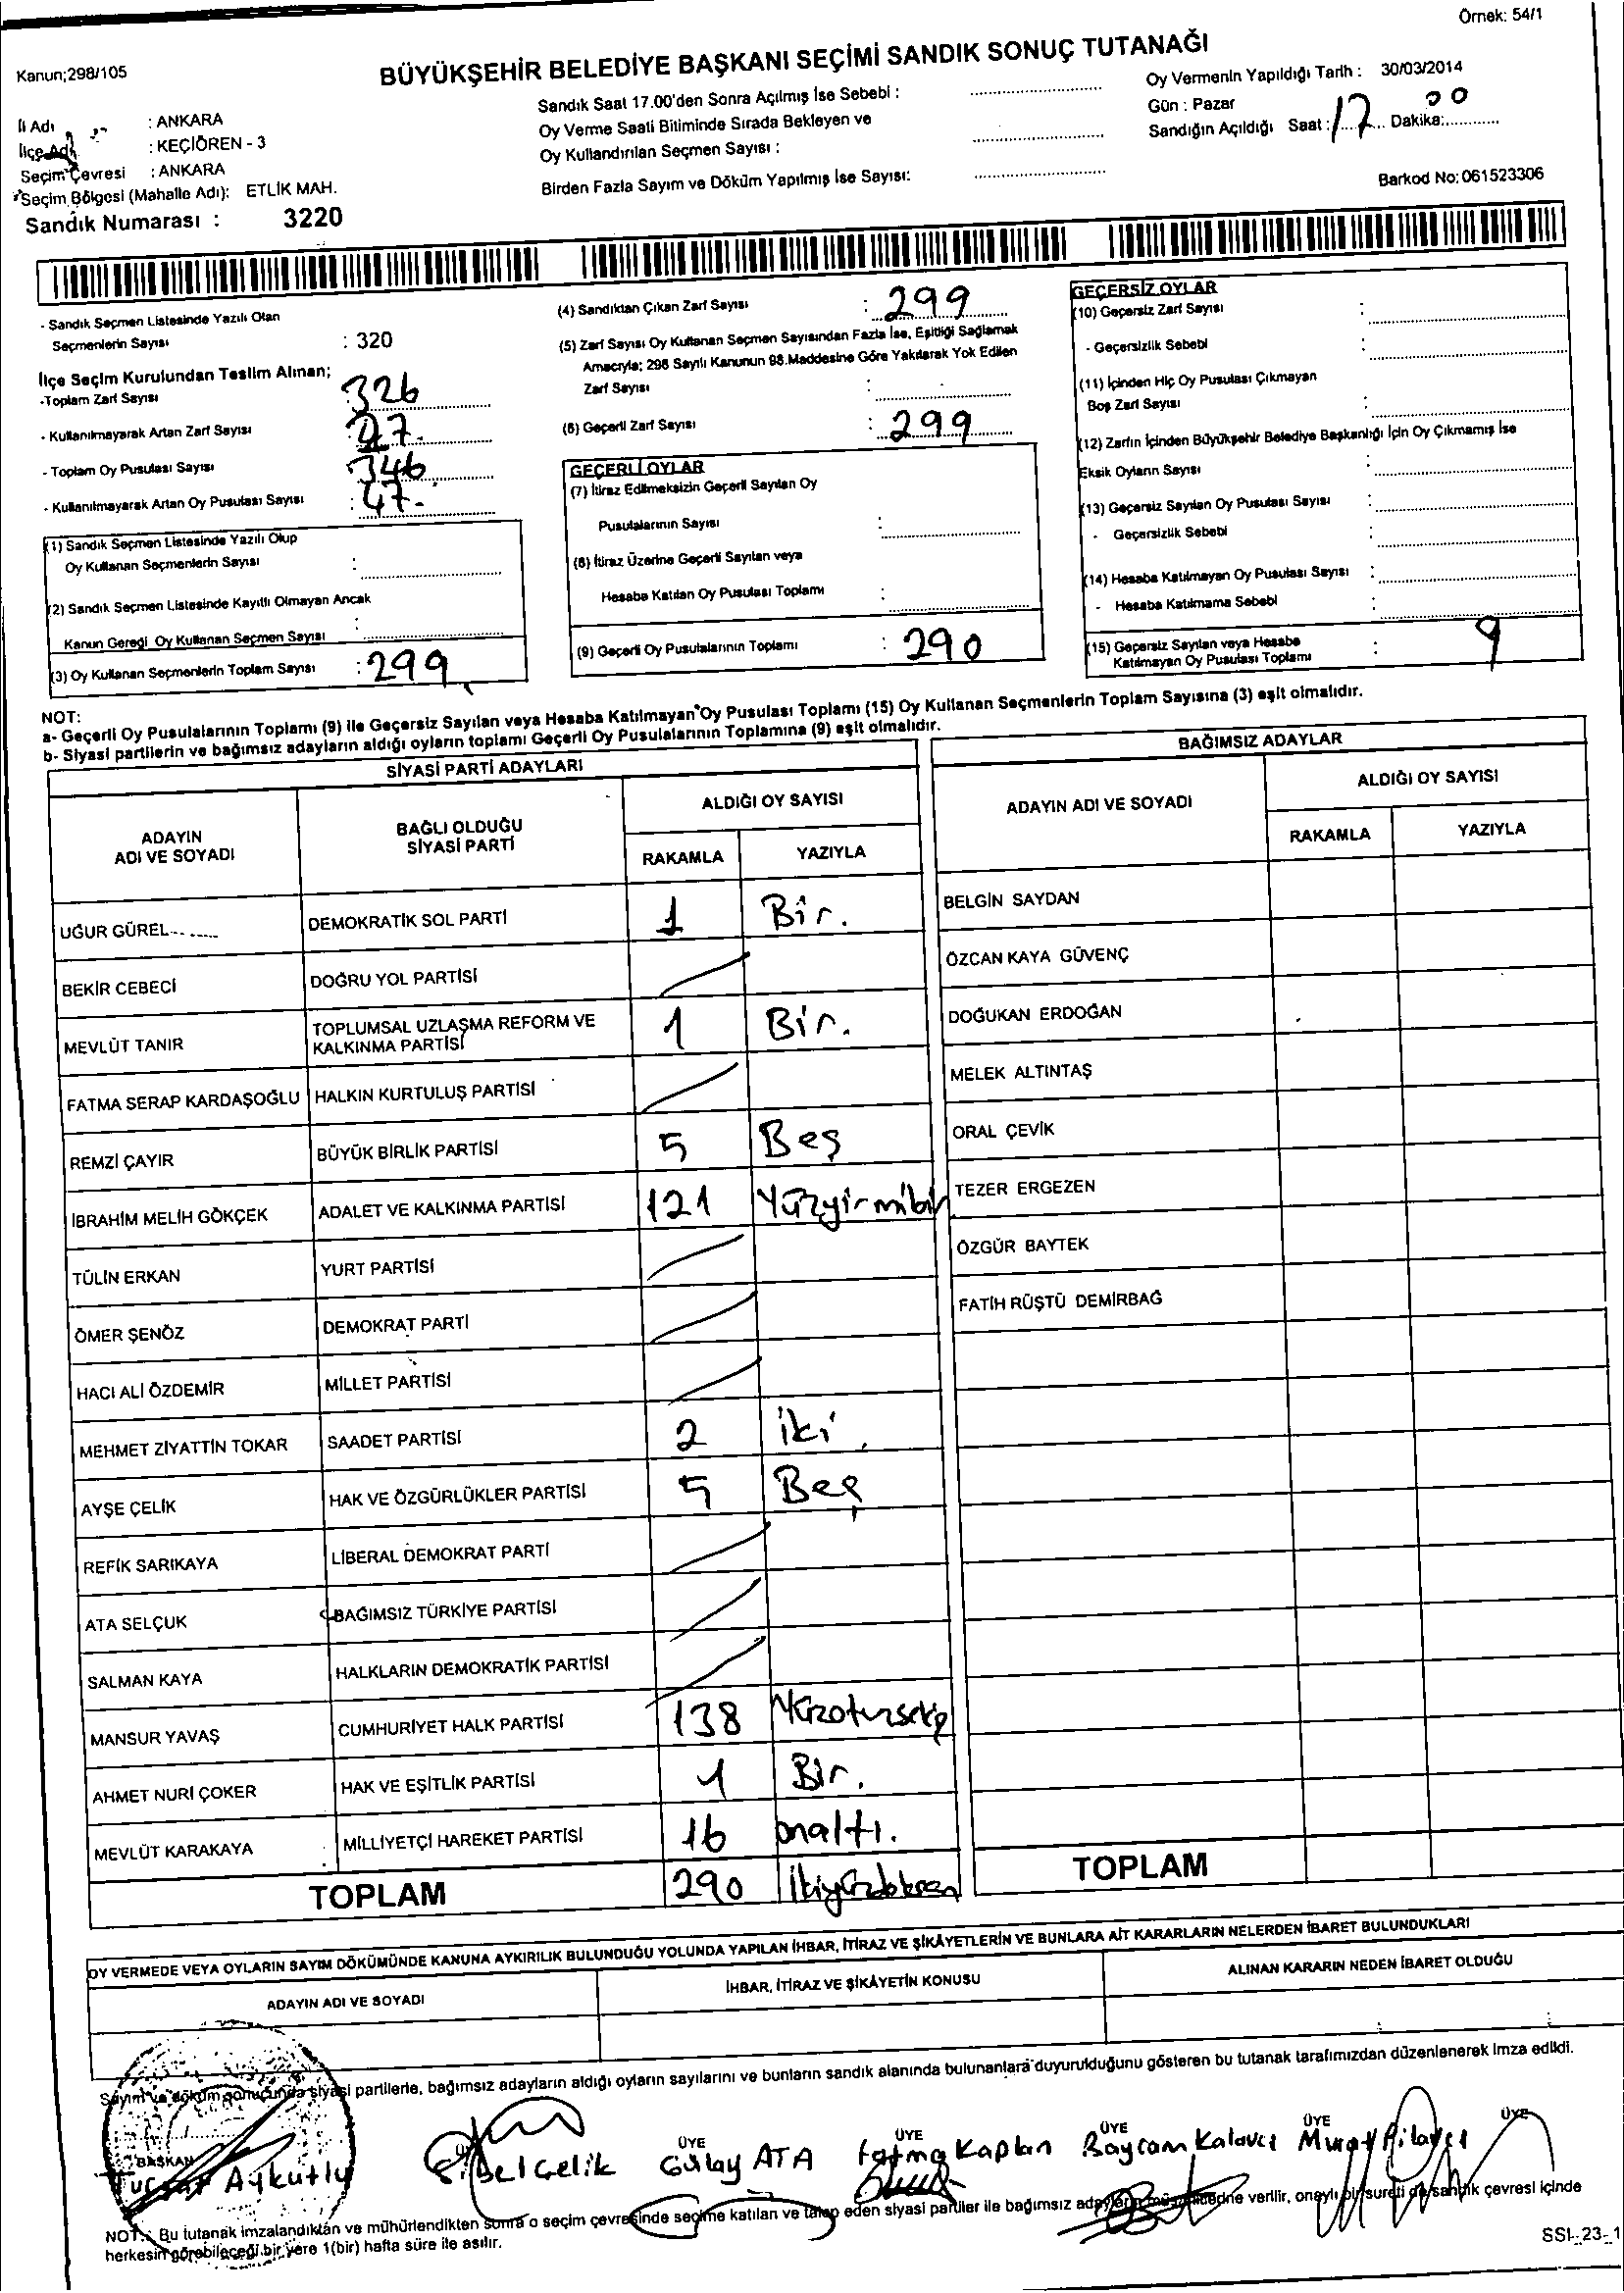 Örnek: 54/1
Kanun;298/105
BÜYÜKŞEHİR BELEDİYE BAŞKANI SEÇİMİ SANDIK SONUÇ TUTANAĞI
İl Adı : ANKARA
İlçe Adı : KEÇİÖREN - 3
Seçim Çevresi : ANKARA
Seçim Bölgesi (Mahalle Adı): ETLİK MAH.
Sandık Numarası : 3220
Sandık Saat 17.00'den Sonra Açılmış İse Sebebi :
Oy Verme Saati Bitiminde Sırada Bekleyen ve
Oy Kullandırılan Seçmen Sayısı :
Birden Fazla Sayım ve Döküm Yapılmış İse Sayısı:
Oy Vermenin Yapıldığı Tarih : 30/03/2014
Gün : Pazar
Sandığın Açıldığı Saat : 17 Dakika: 00
Barkod No: 061523306
- Sandık Seçmen Listesinde Yazılı Olan
Seçmenlerin Sayısı : 320
İlçe Seçim Kurulundan Teslim Alınan;
-Toplam Zarf Sayısı 326
- Kullanılmayarak Artan Zarf Sayısı 27.
- Toplam Oy Pusulası Sayısı 346
- Kullanılmayarak Artan Oy Pusulası Sayısı : 47.
(1) Sandık Seçmen Listesinde Yazılı Olup
Oy Kullanan Seçmenlerin Sayısı :
(2) Sandık Seçmen Listesinde Kayıtlı Olmayan Ancak
Kanun Gereği Oy Kullanan Seçmen Sayısı :
(3) Oy Kullanan Seçmenlerin Toplam Sayısı : 299
(4) Sandıktan Çıkan Zarf Sayısı : 299
(5) Zarf Sayısı Oy Kullanan Seçmen Sayısından Fazla İse, Eşitliği Sağlamak
Amacıyla; 298 Sayılı Kanunun 98.Maddesine Göre Yakılarak Yok Edilen
Zarf Sayısı :
(6) Geçerli Zarf Sayısı : 299
GEÇERLİ OYLAR
(7) İtiraz Edilmeksizin Geçerli Sayılan Oy
Pusulalarının Sayısı :
(8) İtiraz Üzerine Geçerli Sayılan veya
Hesaba Katılan Oy Pusulası Toplamı :
(9) Geçerli Oy Pusulalarının Toplamı : 290
GEÇERSİZ OYLAR
(10) Geçersiz Zarf Sayısı :
- Geçersizlik Sebebi :
(11) İçinden Hiç Oy Pusulası Çıkmayan
Boş Zarf Sayısı :
(12) Zarfın İçinden Büyükşehir Belediye Başkanlığı İçin Oy Çıkmamış İse
Eksik Oyların Sayısı :
(13) Geçersiz Sayılan Oy Pusulası Sayısı :
- Geçersizlik Sebebi :
(14) Hesaba Katılmayan Oy Pusulası Sayısı :
- Hesaba Katılmama Sebebi :
(15) Geçersiz Sayılan veya Hesaba
Katılmayan Oy Pusulası Toplamı : 9
NOT:
a- Geçerli Oy Pusulalarının Toplamı (9) ile Geçersiz Sayılan veya Hesaba Katılmayan Oy Pusulası Toplamı (15) Oy Kullanan Seçmenlerin Toplam Sayısına (3) eşit olmalıdır.
b- Siyasi partilerin ve bağımsız adayların aldığı oyların toplamı Geçerli Oy Pusulalarının Toplamına (9) eşit olmalıdır.
SİYASİ PARTİ ADAYLARI
ADAYIN ADI VE SOYADI BAĞLI OLDUĞU SİYASİ PARTİ ALDIĞI OY SAYISI
RAKAMLA YAZIYLA
UĞUR GÜREL DEMOKRATİK SOL PARTİ 1 Bir.
BEKİR CEBECİ DOĞRU YOL PARTİSİ
MEVLÜT TANIR TOPLUMSAL UZLAŞMA REFORM VE KALKINMA PARTİSİ 1 Bir.
FATMA SERAP KARDAŞOĞLU HALKIN KURTULUŞ PARTİSİ
REMZİ ÇAYIR BÜYÜK BİRLİK PARTİSİ 5 Beş
İBRAHİM MELİH GÖKÇEK ADALET VE KALKINMA PARTİSİ 121 Yüzyirmibir
TÜLİN ERKAN YURT PARTİSİ
ÖMER ŞENÖZ DEMOKRAT PARTİ
HACI ALİ ÖZDEMİR MİLLET PARTİSİ
MEHMET ZİYATTİN TOKAR SAADET PARTİSİ 2 iki
AYŞE ÇELİK HAK VE ÖZGÜRLÜKLER PARTİSİ 5 Beş
REFİK SARIKAYA LİBERAL DEMOKRAT PARTİ
ATA SELÇUK BAĞIMSIZ TÜRKİYE PARTİSİ
SALMAN KAYA HALKLARIN DEMOKRATİK PARTİSİ
MANSUR YAVAŞ CUMHURİYET HALK PARTİSİ 138
AHMET NURİ ÇOKER HAK VE EŞİTLİK PARTİSİ 1 Bir.
MEVLÜT KARAKAYA MİLLİYETÇİ HAREKET PARTİSİ 16 onaltı.
TOPLAM 290
BAĞIMSIZ ADAYLAR
ADAYIN ADI VE SOYADI ALDIĞI OY SAYISI
RAKAMLA YAZIYLA
BELGİN SAYDAN
ÖZCAN KAYA GÜVENÇ
DOĞUKAN ERDOĞAN
MELEK ALTINTAŞ
ORAL ÇEVİK
TEZER ERGEZEN
ÖZGÜR BAYTEK
FATİH RÜŞTÜ DEMİRBAĞ
TOPLAM
OY VERMEDE VEYA OYLARIN SAYIM DÖKÜMÜNDE KANUNA AYKIRILIK BULUNDUĞU YOLUNDA YAPILAN İHBAR, İTİRAZ VE ŞİKÂYETLERİN VE BUNLARA AİT KARARLARIN NELERDEN İBARET BULUNDUKLARI
ADAYIN ADI VE SOYADI İHBAR, İTİRAZ VE ŞİKÂYETİN KONUSU ALINAN KARARIN NEDEN İBARET OLDUĞU
Sayım ve döküm sonucunda siyasi partilerle, bağımsız adayların aldığı oyların sayılarını ve bunların sandık alanında bulunanlara duyurulduğunu gösteren bu tutanak tarafımızdan düzenlenerek imza edildi.
BAŞKAN ÜYE ÜYE ÜYE ÜYE ÜYE
Aykutlu Sibel Çelik Gülay ATA Fatma Kaplan Bayram Kalavcı Murat
NOT: Bu tutanak imzalandıktan ve mühürlendikten sonra o seçim çevresinde seçime katılan ve talep eden siyasi partiler ile bağımsız adayların müşahidlerine verilir, onaylı bir sureti de sandık çevresi içinde
herkesin görebileceği bir yere 1(bir) hafta süre ile asılır.
SSI-23-1